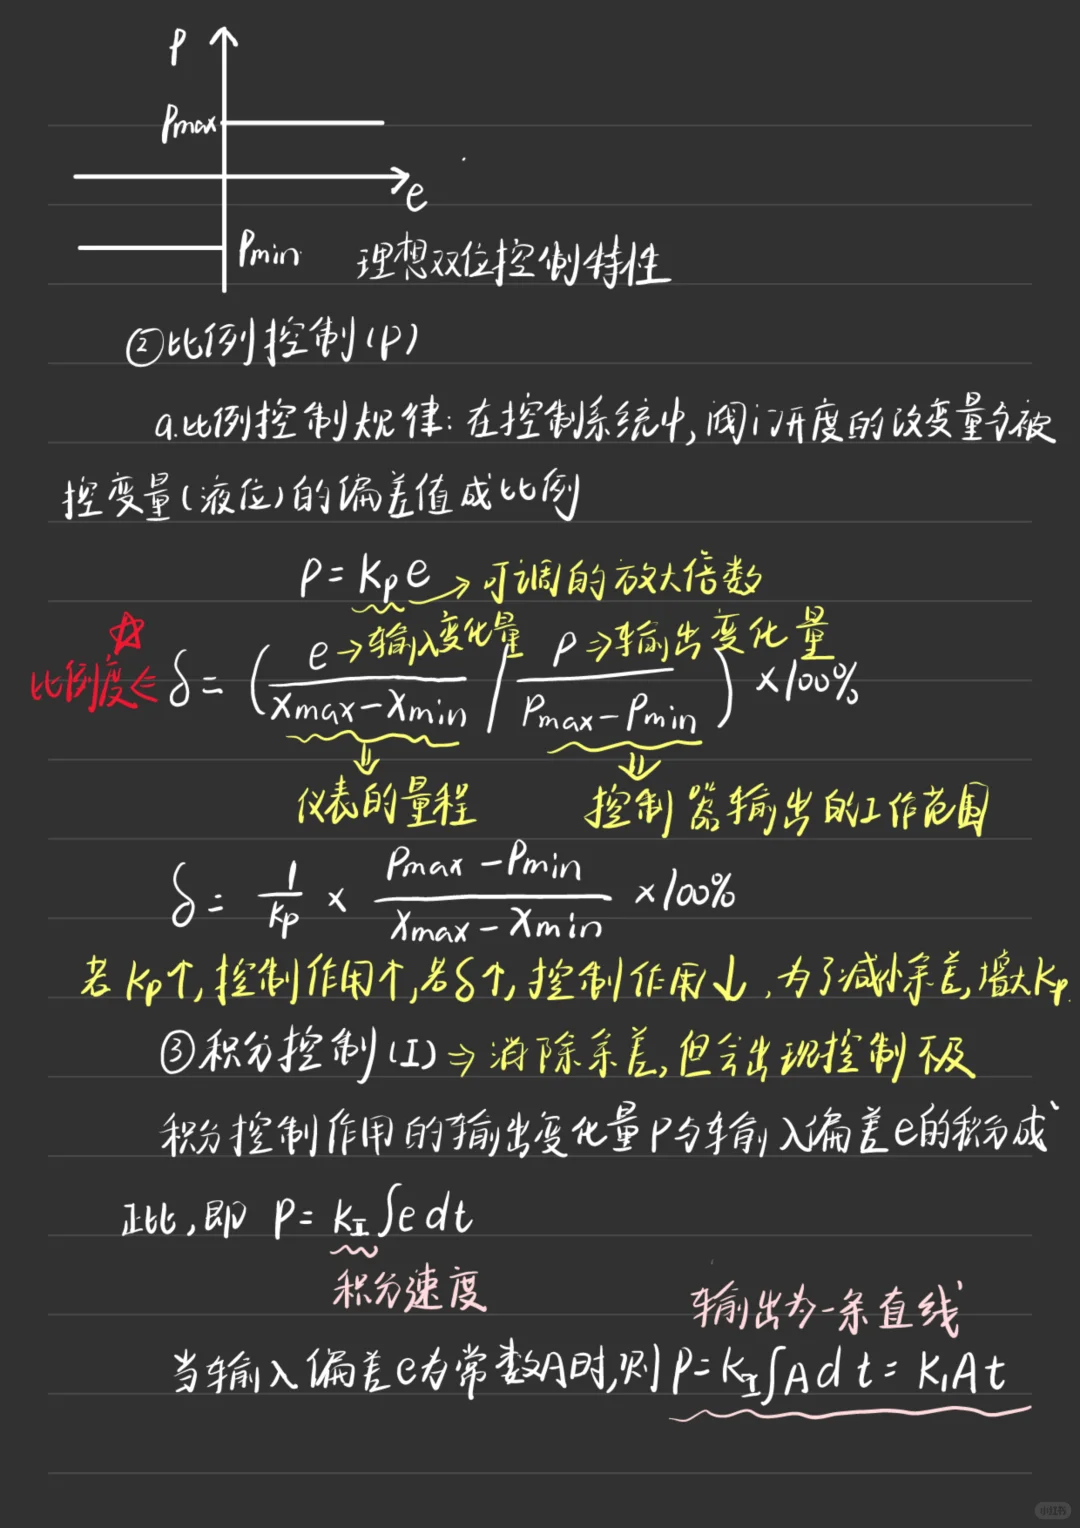 P
Pmax
e
Pmin 理想双位控制特性
②比例控制(P)
a.比例控制规律:在控制系统中,阀门开度的改变量与被
控变量(液位)的偏差值成比例
P=Kpe→可调的放大倍数
e→输入变化量 P⇒输出变化量
比例度⇐ δ=(e/(Xmax-Xmin) / P/(Pmax-Pmin))×100%
仪表的量程 控制器输出的工作范围
δ=1/Kp×(Pmax-Pmin)/(Xmax-Xmin)×100%
若Kp↑,控制作用↑,若δ↑,控制作用↓,为了减小余差,增大Kp.
③积分控制(I)⇒消除余差,但会出现控制不及
积分控制作用的输出变化量P与输入偏差e的积分成
正比,即 P=KI∫edt
积分速度
输出为一条直线
当输入偏差e为常数A时,则P=KI∫Adt=KIAt
小红书